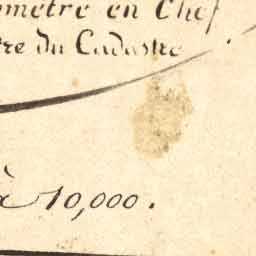 omètre en Chef
tre du Cadastre
à 10,000.